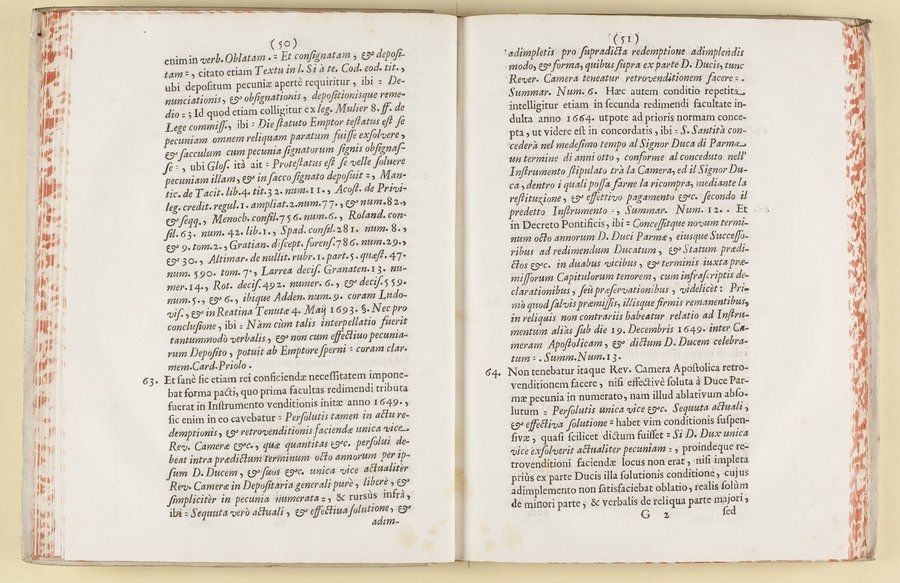 (50)
enim in verb. Oblatam. = Et consignatam, & deposi-
tam =, citato etiam Textu in l. Si à te. Cod. eod. tit.,
ubi depositum pecuniæ apertè requiritur, ibi = De-
nunciationis, & obsignationis, depositionisque reme-
dio = ; Id quod etiam colligitur ex leg. Mulier 8. ff. de
Lege commiss., ibi = Die statuto Emptor testatus est se
pecuniam omnem reliquam paratum fuisse exsolvere,
& sacculum cum pecunia signatorum signis obsignas-
se =, ubi Glos. ità ait = Protestatus est se velle soluere
pecuniam illam, & in sacco signato deposuit =, Man-
tic. de Tacit. lib. 4. tit. 32. num. 11., Acost. de Privi-
leg. credit. regul. 1. ampliat. 2. num. 77., & num. 82.,
& seqq., Menoch. consil. 756. num. 6., Roland. con-
sil. 63. num. 42. lib. 1., Spad. consil. 281. num. 8.,
& 9. tom. 2., Gratian. discept. forens. 786. num. 29.,
& 30., Altimar. de nullit. rubr. 1. part. 5. quæst. 47.
num. 590. tom. 7., Larrea decis. Granaten. 13. nu-
mer. 14., Rot. decis. 492. numer. 6., & decis. 559.
num. 5., & 6., ibique Adden. num. 9. coram Ludo-
vis., & in Reatina Tenutæ 4. Maij 1693. §. Nec pro
conclusione, ibi = Nàm cùm talis interpellatio fuerit
tantummodò verbalis, & non cum effectiuo pecunia-
rum Deposito, potuit ab Emptore sperni = coram clar-
mem. Card. Priolo.
63. Et sanè sic etiam rei conficiendæ necessitatem impone-
bat forma pacti, quo prima facultas redimendi tributa
fuerat in Instrumento venditionis initæ anno 1649.,
sic enim in eo cavebatur = Persolutis tamen in actu re-
demptionis, & retrovenditionis faciendæ unica vice
Rev. Cameræ &c., quæ quantitas &c. persolui de-
beat intra prædictum terminum octo annorum per ip-
sum D. Ducem, & suos &c. unica vice actualitèr
Rev. Cameræ in Depositaria generali purè, liberè, &
simplicitèr in pecunia numerata =, & rursùs infrà,
ibi = Sequuta verò actuali, & effectiua solutione, &
adim-
(51)
adimpletis pro supradicta redemptione adimplendis
modo, & forma, quibus supra ex parte D. Ducis, tunc
Rever. Camera teneatur retrovenditionem facere = .
Summar. Num. 6. Hæc autem conditio repetita
intelligitur etiam in secunda redimendi facultate in-
dulta anno 1664. utpote ad prioris normam conce-
pta, ut videre est in concordatis, ibi = S. Santità con-
cederà nel medesimo tempo al Signor Duca di Parma
un termine di anni otto, conforme al conceduto nell'
Instrumento stipulato trà la Camera, ed il Signor Du-
ca, dentro i quali possa farne la ricompra, mediante la
restituzione, & effettivo pagamento &c. secondo il
predetto Instrumento =, Summar. Num. 12.. Et
in Decreto Pontificis, ibi = Concessitque novum termi-
num octo annorum D. Duci Parmæ, eiusque Successo-
ribus ad redimendum Ducatum, & Statum prædi-
ctos &c. in duabus vicibus, & terminis iuxta præ-
missorum Capitulorum tenorem, cum infrascriptis de-
clarationibus, seù præservationibus, videlicèt: Pri-
mò quod salvis præmissis, illisque firmis remanentibus,
in reliquis non contrariis habeatur relatio ad Instru-
mentum aliàs sub die 19. Decembris 1649. inter Ca-
meram Apostolicam, & dictum D. Ducem celebra-
tum = . Summ. Num. 13.
64. Non tenebatur itaque Rev. Camera Apostolica retro-
venditionem facere, nisi effectivè soluta à Duce Par-
mæ pecunia in numerato, nam illud ablativum abso-
lutum = Persolutis unica vice &c. Sequuta actuali,
& effectiva solutione = habet vim conditionis suspen-
sivæ, quasi scilicet dictum fuisset = Si D. Dux unica
vice exsolverit actualiter pecuniam =, proindeque re-
trovenditioni faciendæ locus non erat, nisi impleta
priùs ex parte Ducis illa solutionis conditione, cujus
adimplemento non satisfaciebat oblatio, realis solùm
de minori parte, & verbalis de reliqua parte majori,
G 2 sed